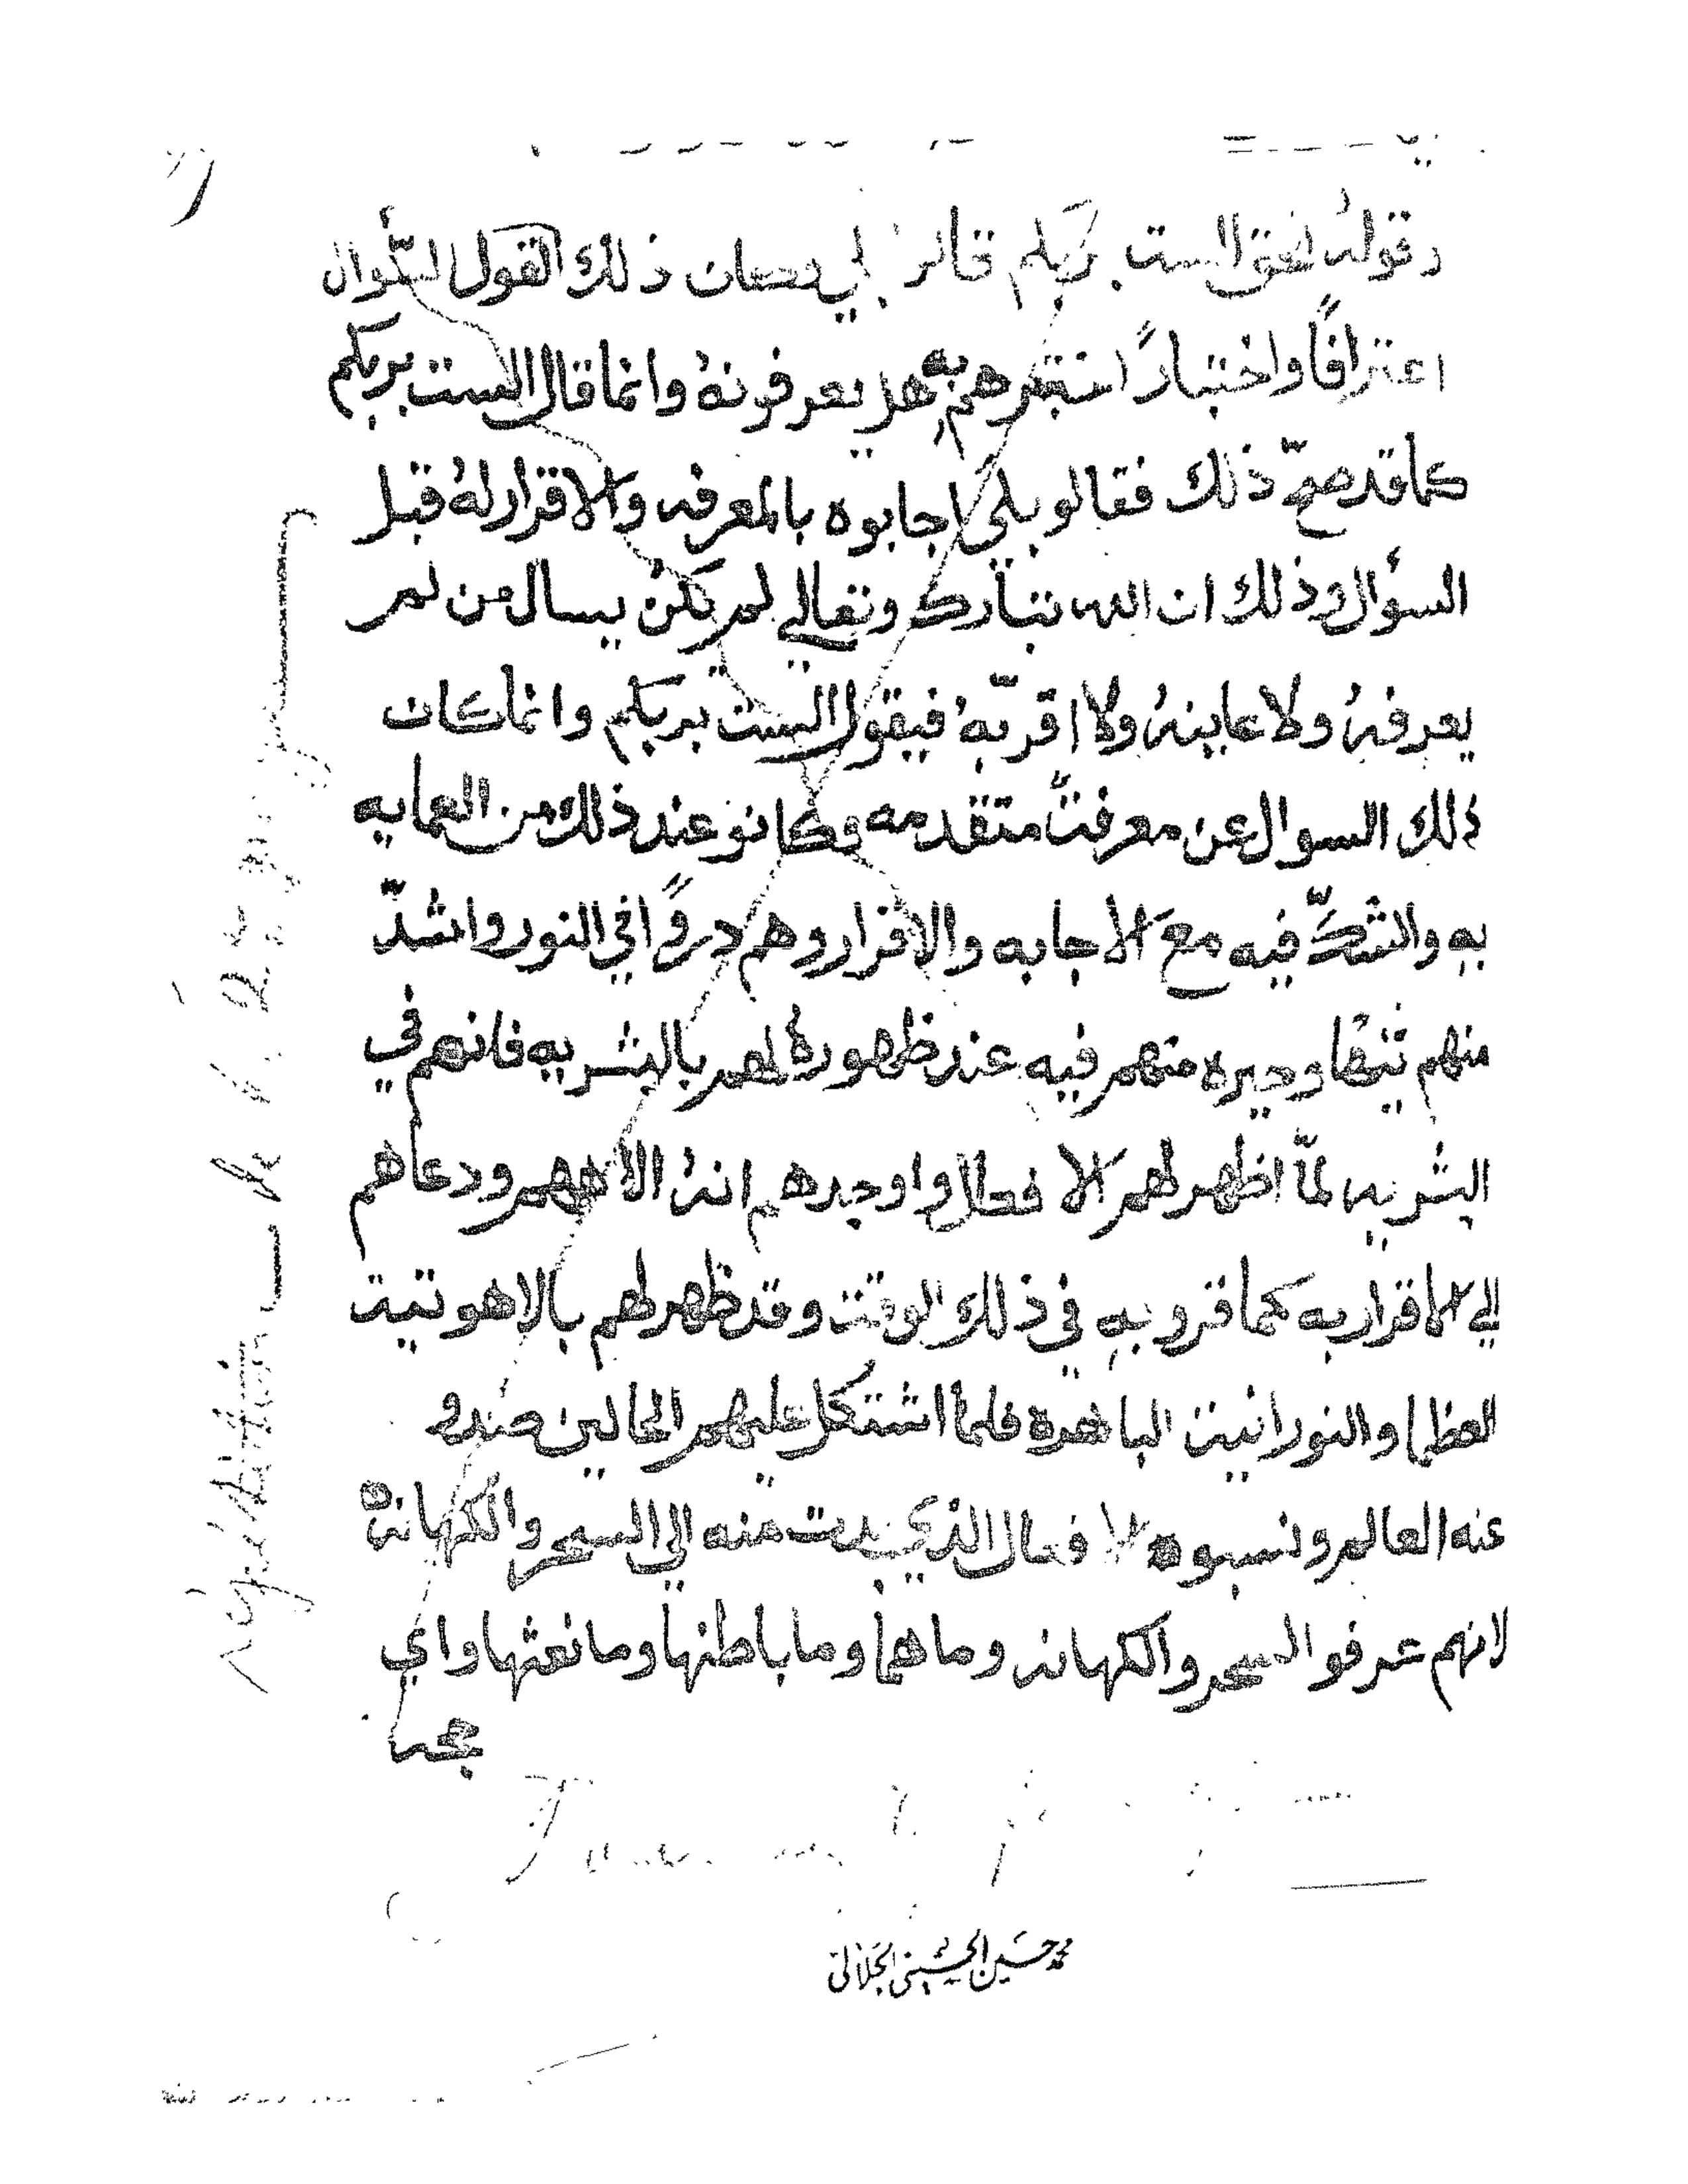 وقوله الحق الست بربكم قالو بلي فكان ذلك القول السّؤال
اعترافًا واختبارًا اختبرهم به هل يعرفونهُ وانما قال الست بربكم
كما قد صحّ ذلك فقالو بلى اجابوه بالمعرفه والاقرار لهُ قبل
السؤال وذلك ان الله تبارك وتعالي لم يكن يسال من لم
يعرفهُ ولا عاينهُ ولا اقرّ بهُ فيقول الست بربكم وانما كان
ذلك السوال عن معرفتًا متقدمه وكانو عند ذلك من العمايه
به والشكّ فيه معَ الاجابه والاقرار وهم دروًا في النور واشدّ
منهم وحيره منهم فيه عند ظهورهُ لهم بالبشريه فانهم في
البشريه لمّا اظهر لهم الافعال واوجدهم انهُ الاههم ودعاهم
الي الاقرار به كما قرو به في ذلك الوقت وقد ظهر لهم بالاهوتية
العظما والنورانية الباهرة فلما اشتكل عليهم الحالين صدو
عنه العالم ونسبوه الافعال الذي بدت منه الي السحر والكهانه
لانهم عرفو السحر والكهانه وما هما وما باطنها وما نعتها واي
محمد حسين الحسيني الجلالي